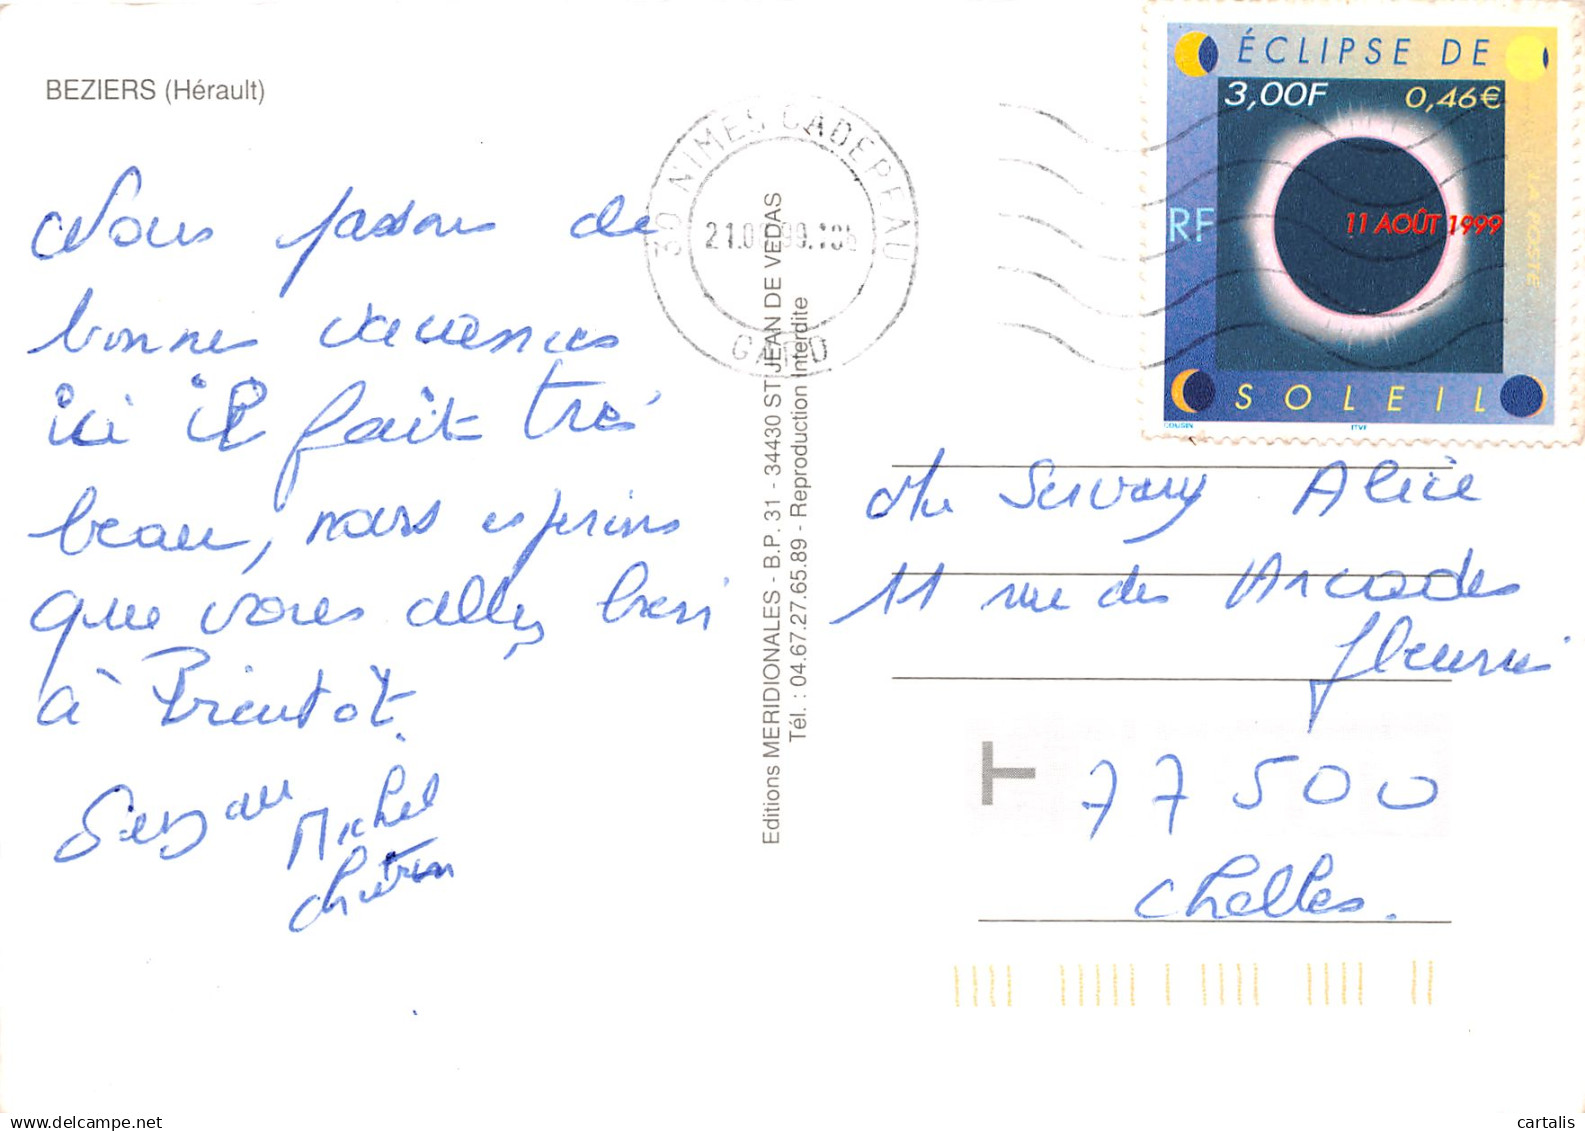 BEZIERS (Hérault)
Nous passons de
bonnes vacances
ici il fait très
beau, nous esperons
que vous allez bien
à Bientôt.
Michel
30 NIMES CADEREAU
GARD
Editions MERIDIONALES - B.P. 31 - 34430 ST JEAN DE VEDAS
Tél. : 04.67.27.65.89 - Reproduction Interdite
ÉCLIPSE DE
3,00F 0,46€
RF
11 AOÛT 1999
LA POSTE
SOLEIL
COUSIN ITVF
Alice
11 rue des Arcades
fleuris
T 77500
Chelles.
cartalis